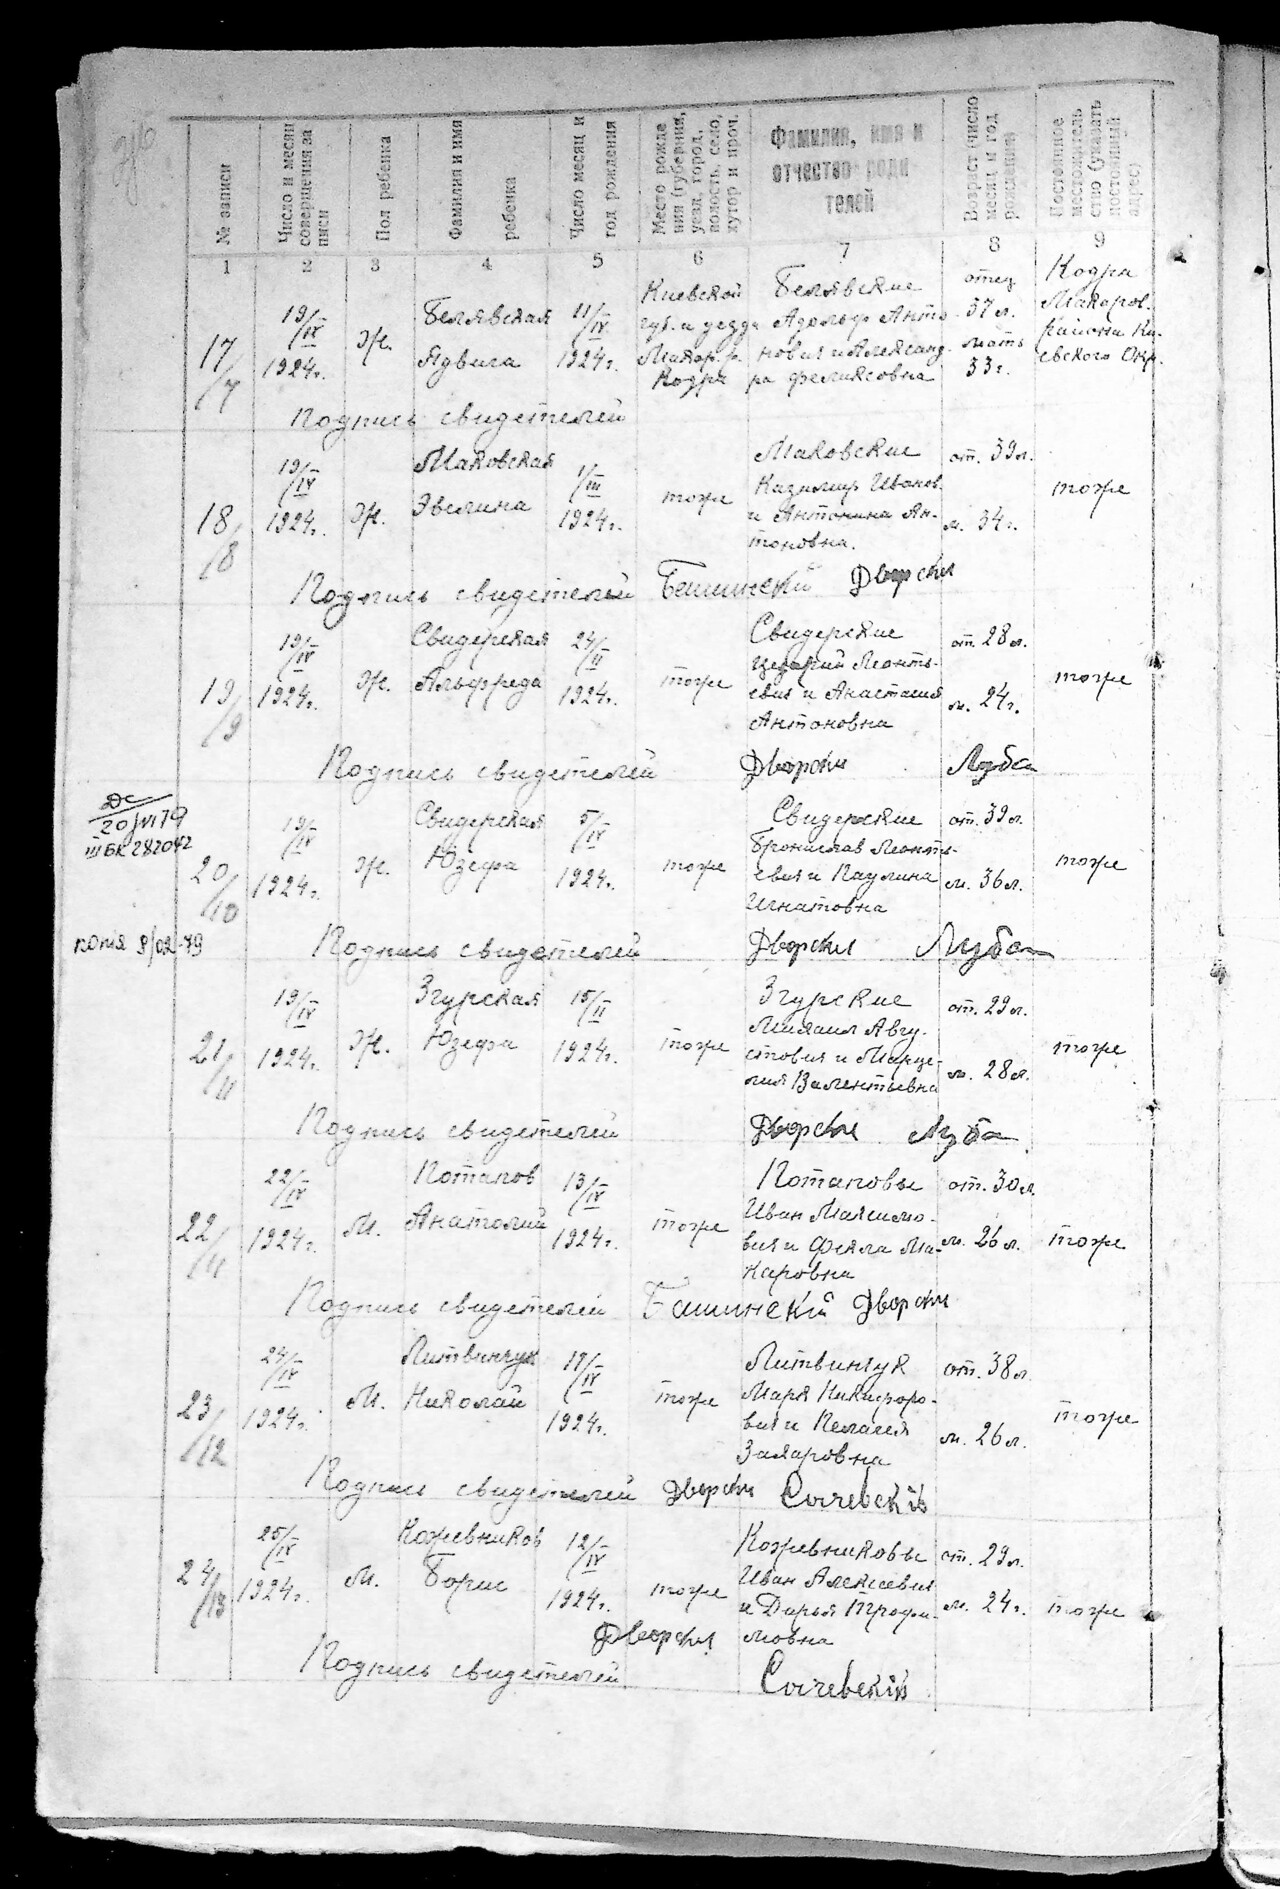 № записи
Число и месяц совершения записи
Пол ребенка
Фамилия и имя ребенка
Число месяц и год рождения
Место рождения (губерния, уезд, город, волость, село, хутор и проч.
Фамилия, имя и отчество родителей
Возраст (число месяц и год рождения
Постоянное местожительство (указать постоянный адрес)
1 2 3 4 5 6 7 8 9
17/7
19/IV 1924г.
Ж.
Белявская
Ядвига
11/IV 1924г.
Киевской
губ. и уезда
Макар. р.
Кодра
Белявские
Адольф Анто-
нович и Александ-
ра Феликсовна
отец
37 л.
мать
33 г.
Кодра
Макаров.
района Ки-
евского Окр.
Подпись свидетелей
18/8
19/IV 1924г.
Ж.
Маковская
Эвелина
1/III 1924г.
тоже
Маковские
Казимир Иванов.
и Антонина Ан-
тоновна.
от. 39 л.
м. 34 г.
тоже
Подпись свидетелей Башинский Дворский
19/9
19/IV 1924г.
Ж.
Свидерская
Альфреда
24/II 1924г.
тоже
Свидерские
Цезарий Леонть-
евич и Анастасия
Антоновна
от. 28 л.
м. 24 г.
тоже
Подпись свидетелей Дворский Луба
ДС
20/VI 79
III БК 282042
20/10
19/IV 1924г.
Ж.
Свидерская
Юзефа
5/IV 1924г.
тоже
Свидерские
Бронислав Леонть-
евич и Паулина
Игнатовна
от. 39 л.
м. 36 л.
тоже
копия 8/02-79
Подпись свидетелей Дворский Луба
21/11
19/IV 1924г.
Ж.
Згурская
Юзефа
15/II 1924г.
тоже
Згурские
Михаил Авгу-
стович и Марце-
лия Валентьевна
от. 29 л.
м. 28 л.
тоже
Подпись свидетелей Дворский Луба
22/11
22/IV 1924г.
М.
Потапов
Анатолий
13/IV 1924г.
тоже
Потаповы
Иван Максимо-
вич и Фекла Ма-
каровна
от. 30 л.
м. 26 л.
тоже
Подпись свидетелей Башинский Дворский
23/12
24/IV 1924г.
М.
Литвинчук
Николай
17/IV 1924г.
тоже
Литвинчук
Марк Никифоро-
вич и Пелагея
Захаровна
от. 38 л.
м. 26 л.
тоже
Подпись свидетелей Дворский
24/13
25/IV 1924г.
М.
Кожевников
Борис
12/IV 1924г.
тоже
Кожевниковы
Иван Алексеевич
и Дарья Трофи-
мовна
от. 29 л.
м. 24 г.
тоже
Дворский
Подпись свидетелей